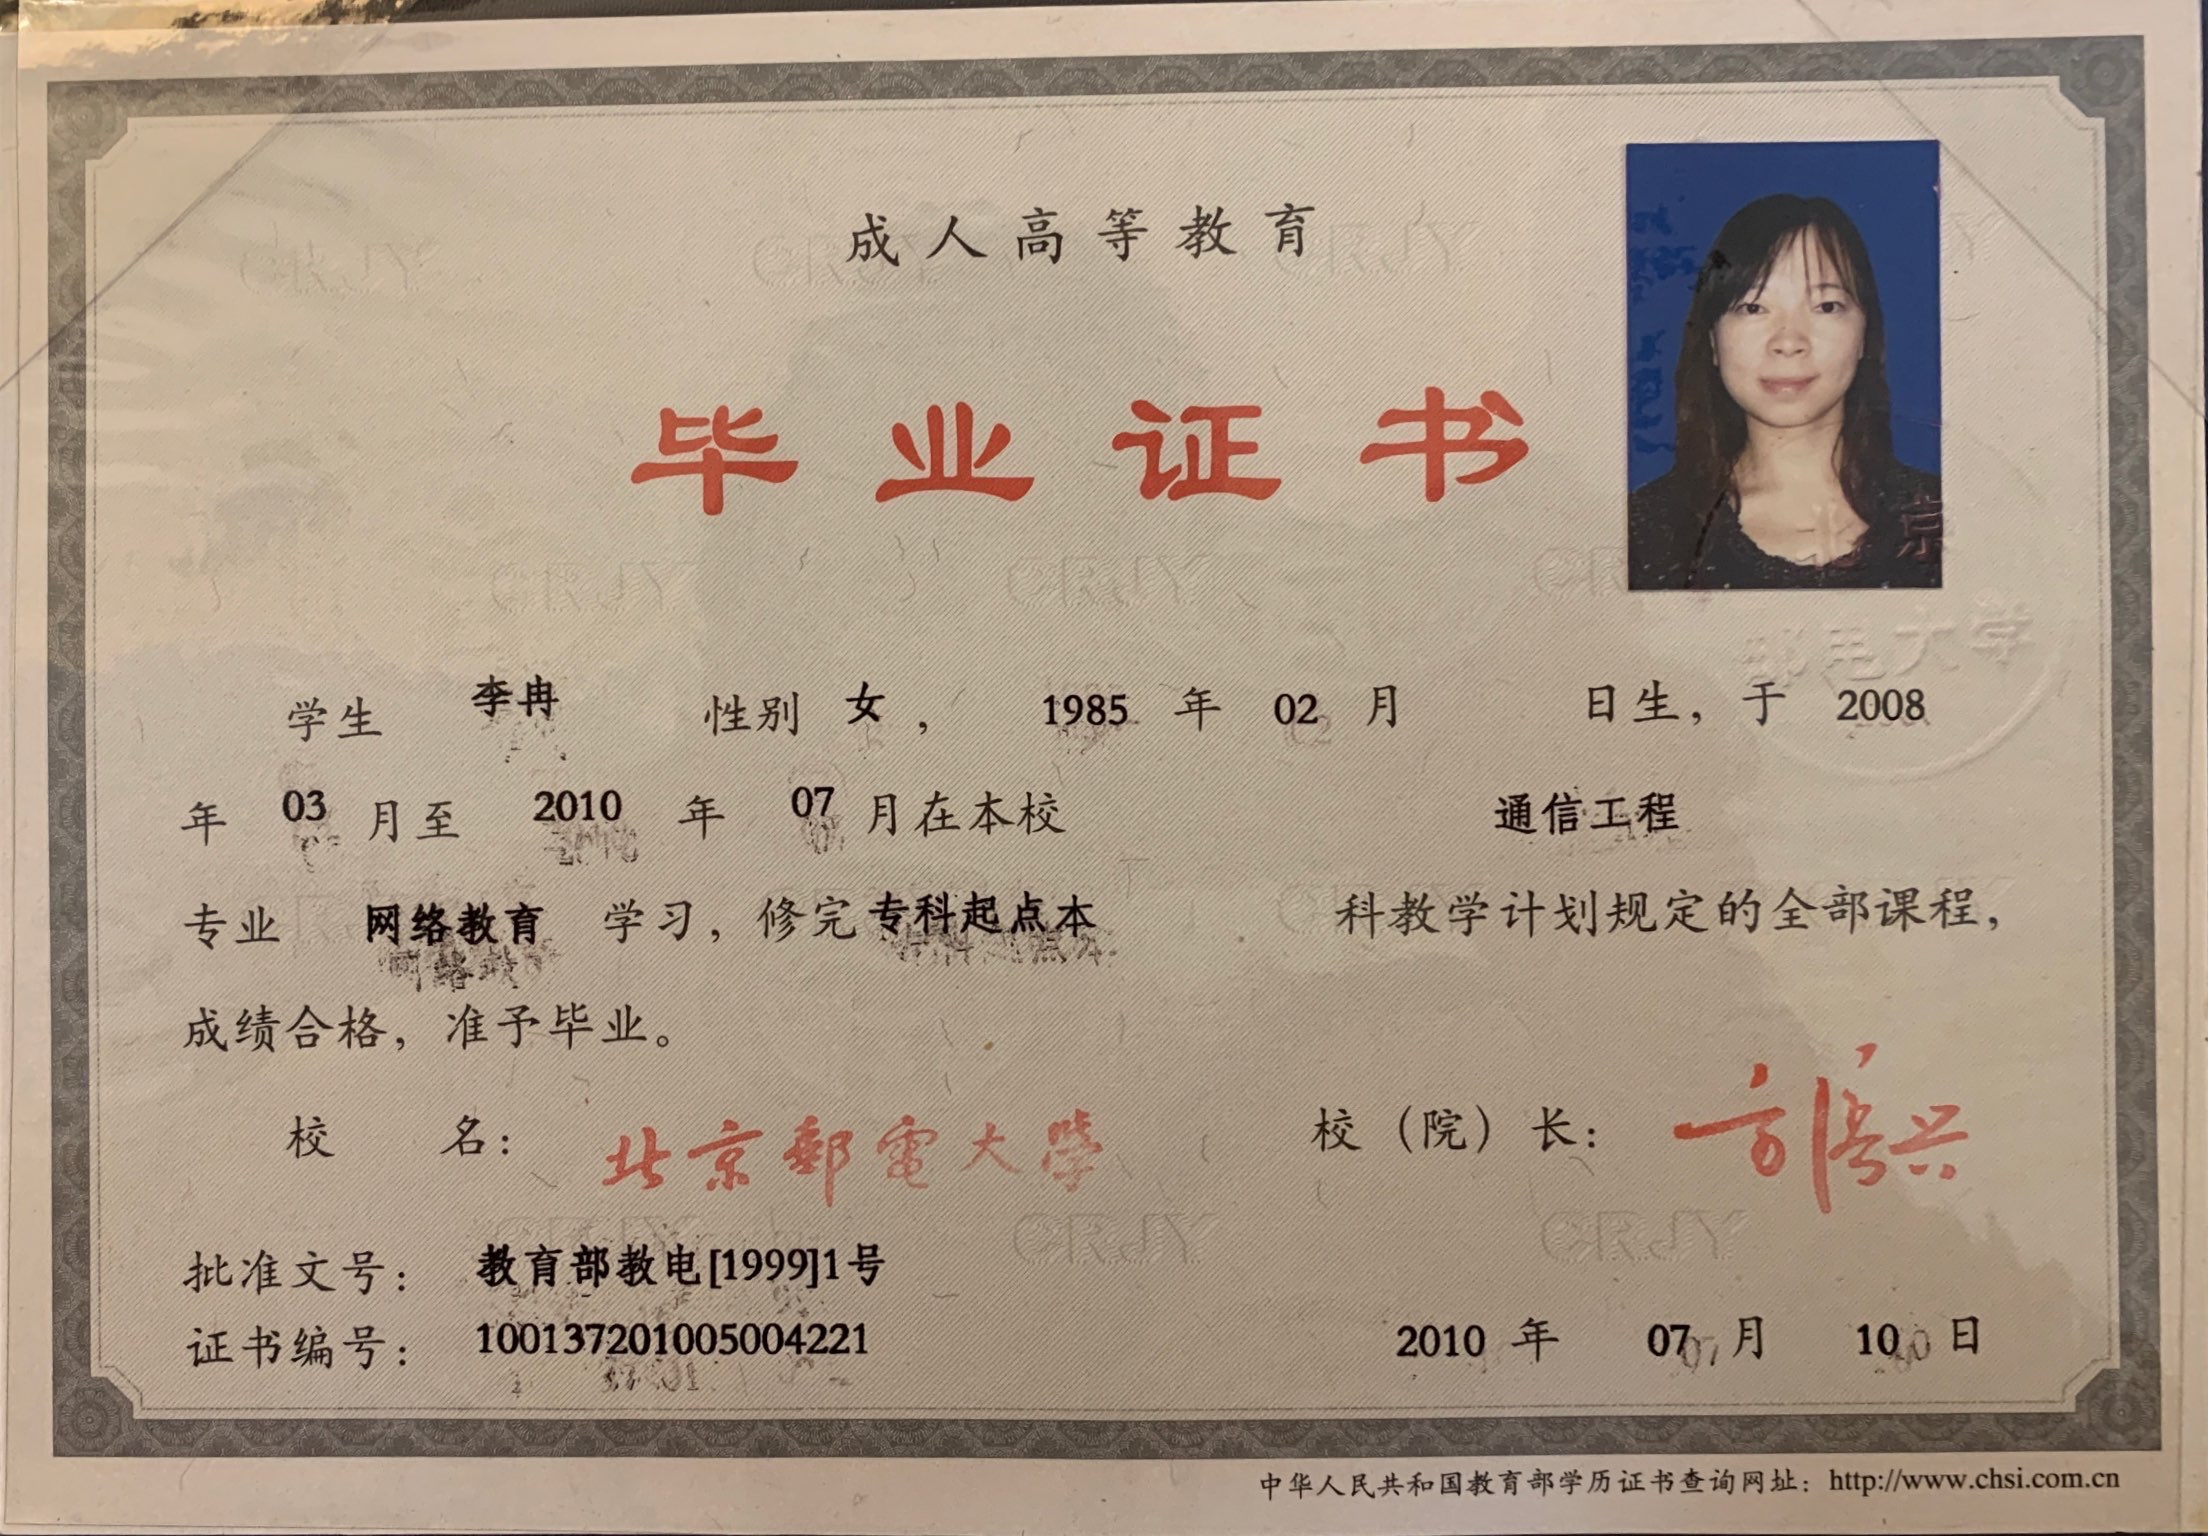 成人高等教育
毕业证书
学生 李冉 性别 女， 1985 年 02 月 日生，于 2008
年 03 月至 2010 年 07 月在本校 通信工程
专业 网络教育 学习，修完 专科起点本 科教学计划规定的全部课程，
成绩合格，准予毕业。
校 名： 北京郵電大學 校（院）长： 方滨兴
批准文号： 教育部教电[1999]1号
证书编号： 100137201005004221 2010 年 07 月 10 日
中华人民共和国教育部学历证书查询网址：http://www.chsi.com.cn
北京
邮电大学